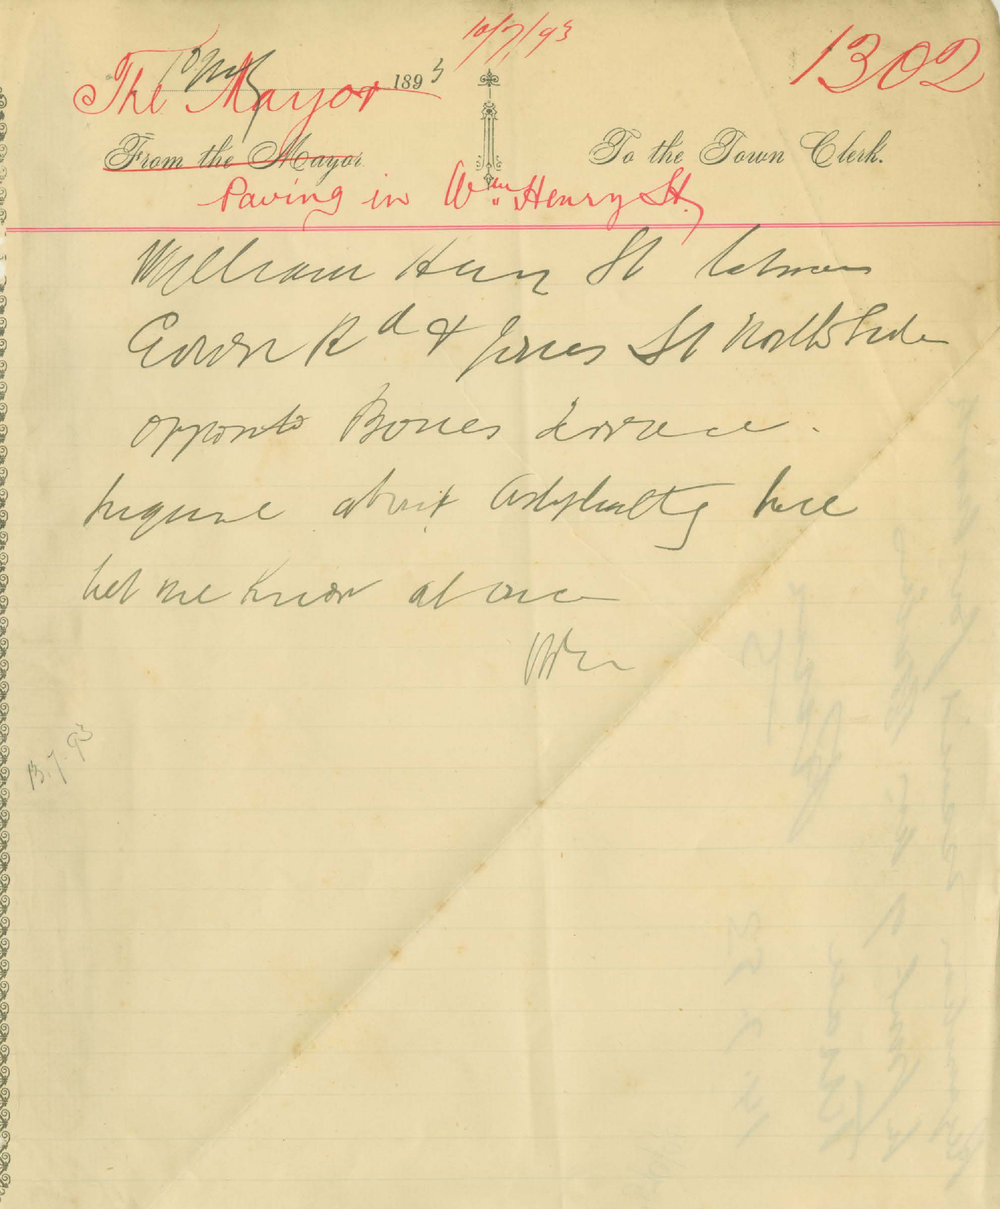 10/7/93
1302
10 July 1893
The Mayor
From the Mayor
To the Town Clerk.
Paving in Wm. Henry St.
William Henry St between
Cowper Rd & Jones St North Side
opposite Bones Terrace.
Inquire about Asphalting here
Let me know at once
13.7.93